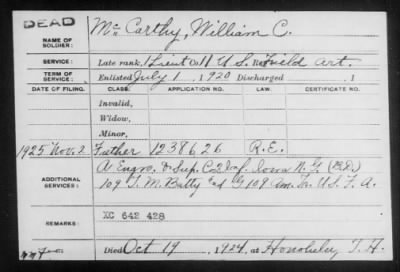 DEAD
NAME OF SOLDIER: Mc Carthy, William C.
SERVICE: Late rank, 1 Lieut Co 11 U.S. Field Art.
TERM OF SERVICE: Enlisted July 1, 1920 Discharged , 1
DATE OF FILING. CLASS. APPLICATION NO. LAW. CERTIFICATE NO.
Invalid,
Widow,
Minor,
1925 Nov. 2 Father 1238626 R.E.
ADDITIONAL SERVICES: A Engrs. & Sup. Co 2 Inf. Iowa N.G.
109 T. M. Batty and G 109 Am. Tr. U.S.F.A.
REMARKS: XC 642 428
Died Oct 19, 1924, at Honolulu T.H.